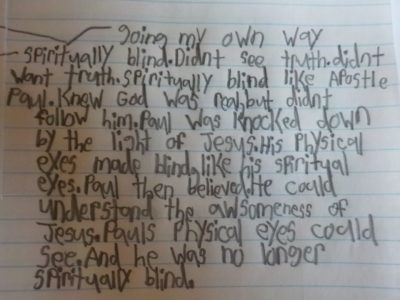 going my own way
- Spiritually blind.Didnt see truth.didnt
want truth.Spiritually blind like Apostle
Paul.Knew God was real,but didnt
follow him.Paul was knocked down
by the light of Jesus.His Physical
eyes made blind,like his spiritual
eyes.Paul then believed.He could
understand the awsomeness of
Jesus.Pauls Physical eyes could
see.And he was no longer
Spiritually blind.